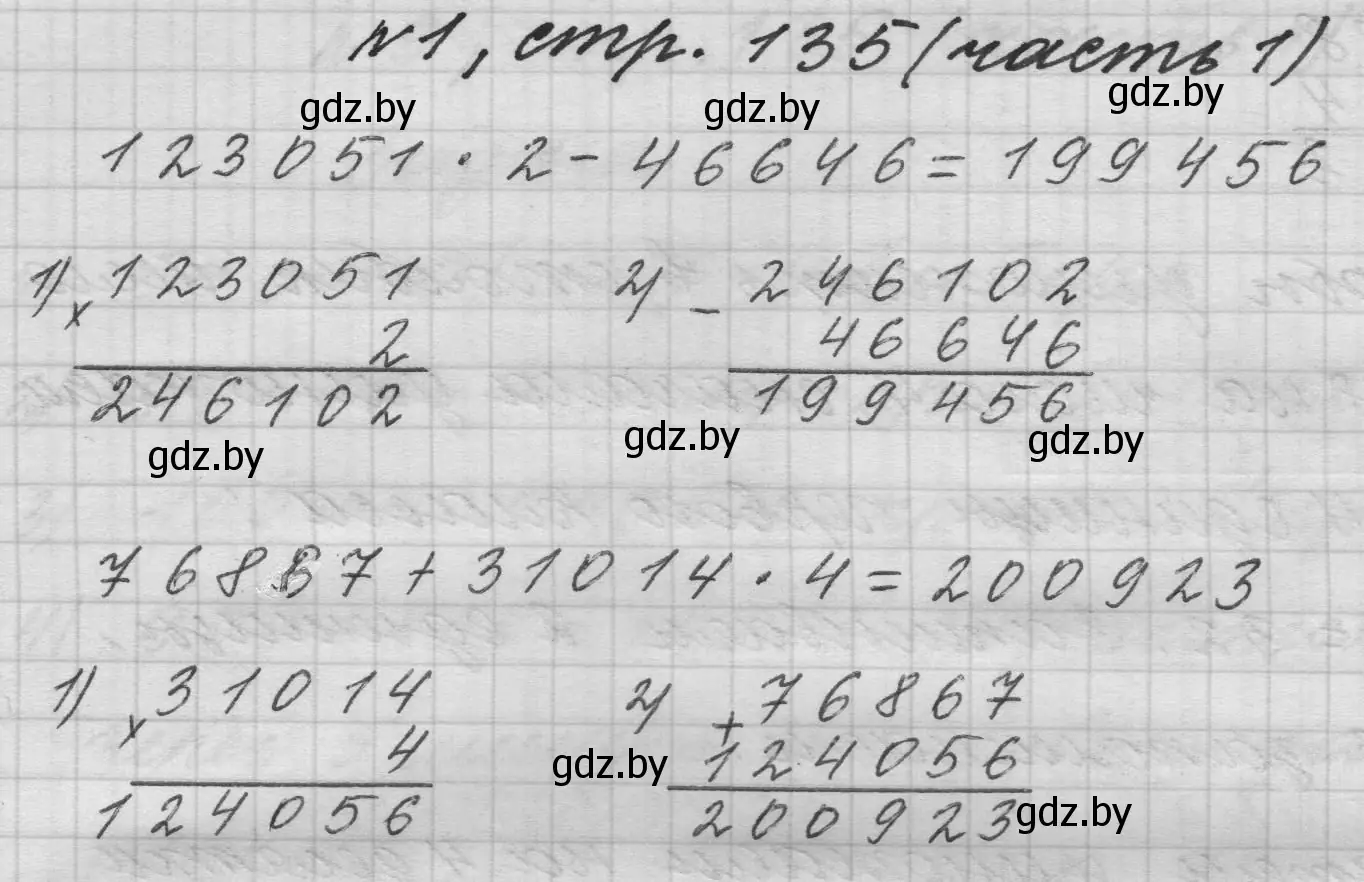 №1, стр. 135 (часть 1)
gdz.by gdz.by gdz.by
123051 · 2 - 46646 = 199456
1) × 123051 2) - 246102
2 46646
246102 199456
gdz.by gdz.by gdz.by
76867 + 31014 · 4 = 200923
1) × 31014 2) + 76867
4 gdz.by 124056
124056 200923 gdz.by